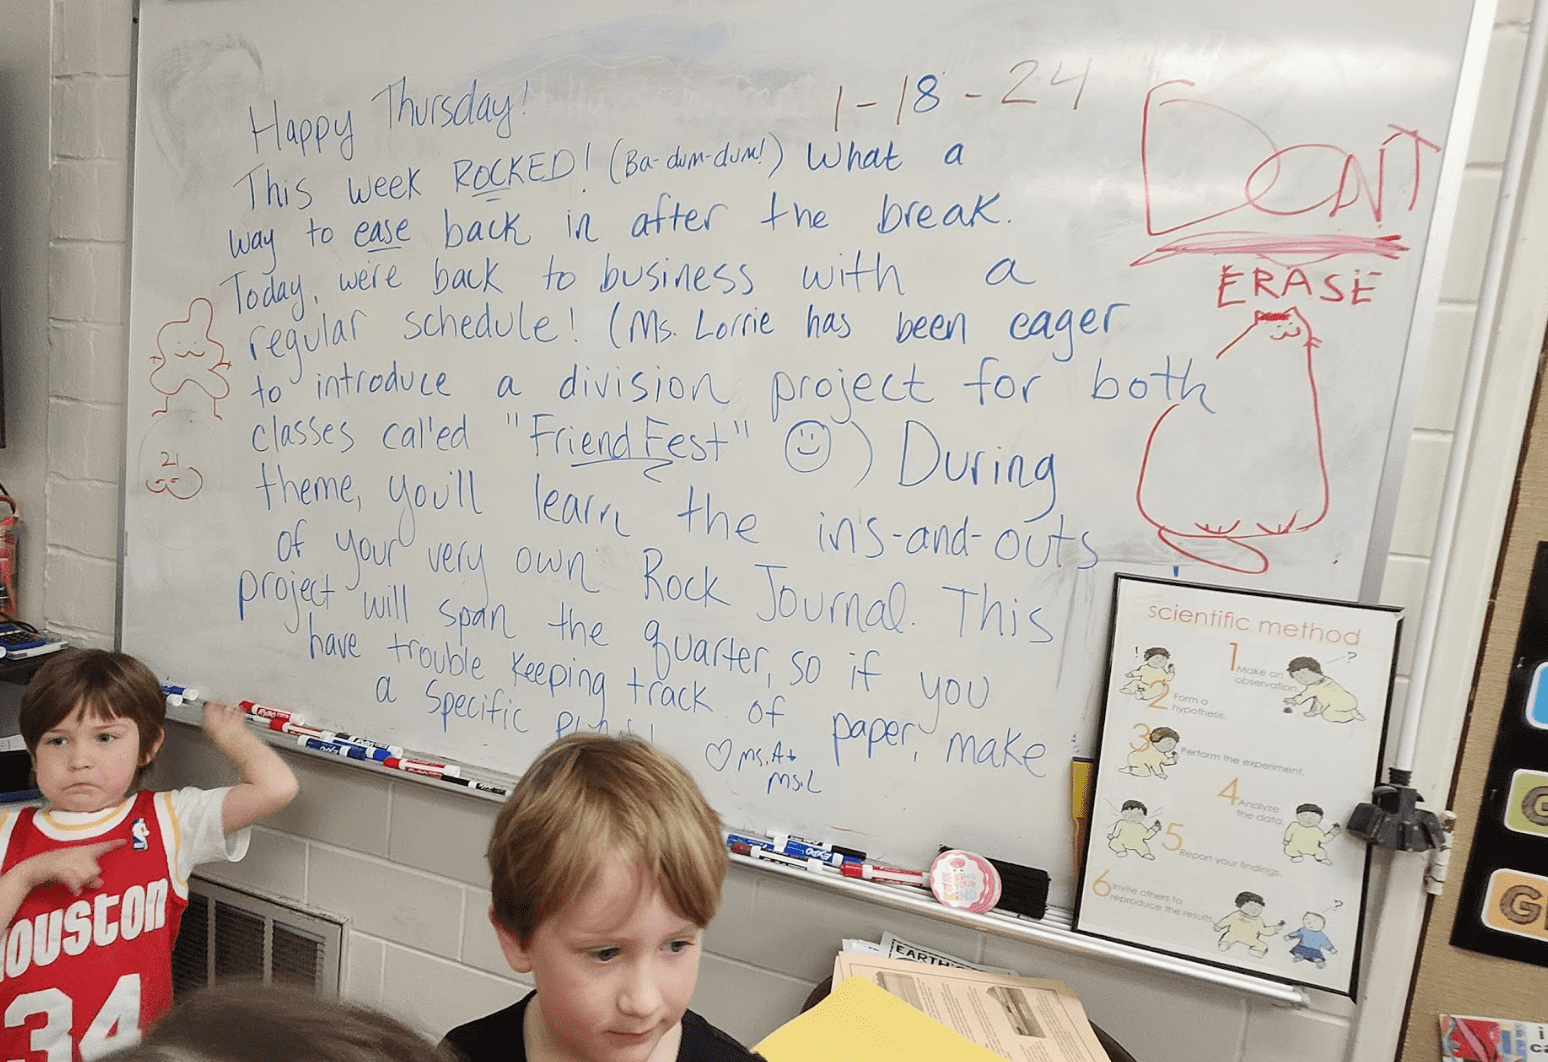 Happy Thursday!
1-18-24
This week ROCKED! (Ba-dum-dum!) What a
way to ease back in after the break.
Today, we're back to business with a
regular schedule! (Ms. Lorrie has been eager
to introduce a division project for both
classes called "FriendFest" ☺) During
theme, you'll learn the in's-and-outs
of your very own Rock Journal. This
project will span the quarter, so if you
have trouble keeping track of paper, make
a specific
♡ Ms. A +
Ms. L
DONT
ERASE
21
scientific method
1 Make an
observation.
2 Form a
hypothesis.
3 Perform the experiment.
4 Analyze
the data.
5 Report your findings.
6 Invite others to
reproduce the results.
HOUSTON
34
EARTH'S
G
G